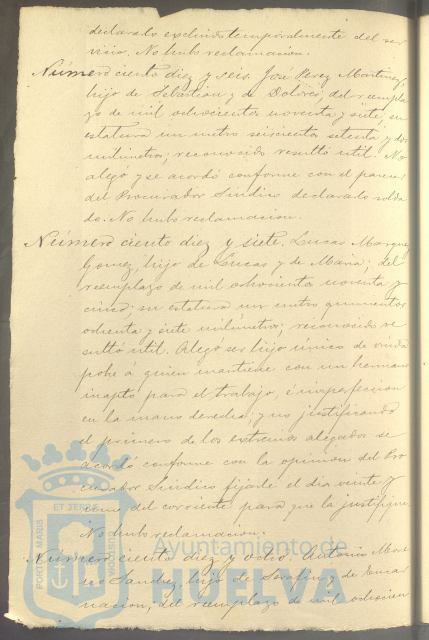 declararlo excluido temporalmente del ser
vicio. No hubo reclamacion.
Número ciento diez y seis. José Perez Martinez,
hijo de Sebastián y de Dolores, del reempla
zo de mil ochocientos noventa y siete, su
estatura un metro seiscientos setenta y dos
milimetros; reconocido resultó útil. No
alegó y se acordó conforme con el parecer
del Procurador Sindico declararlo solda
do. No hubo reclamacion.
Número ciento diez y siete. Lucas Marquez
Gomez, hijo de Lucas y de Maria; del
reemplazo de mil ochocientos noventa y
cinco; su estatura un metro quinientos
ochenta y siete milimetros; reconocido re
sultó útil. Alegó ser hijo único de viuda
pobre á quien mantiene con un hermano
inapto para el trabajo, é imperfeccion
en la mano derecha; y no justificando
el primero de los extremos alegados se
acordó conforme con la opinion del Pro
curador Sindico fijarle el dia veinte y
del corriente para que lo justifique.
No hubo reclamacion.
Número ciento diez y ocho. Antonio
Sanchez, hijo de Serafin y de Encar
nacion, del reemplazo de mil ochocien
PORTUS MARIS
ET TERRAE
CUSTODIA
Ayuntamiento de
HUELVA